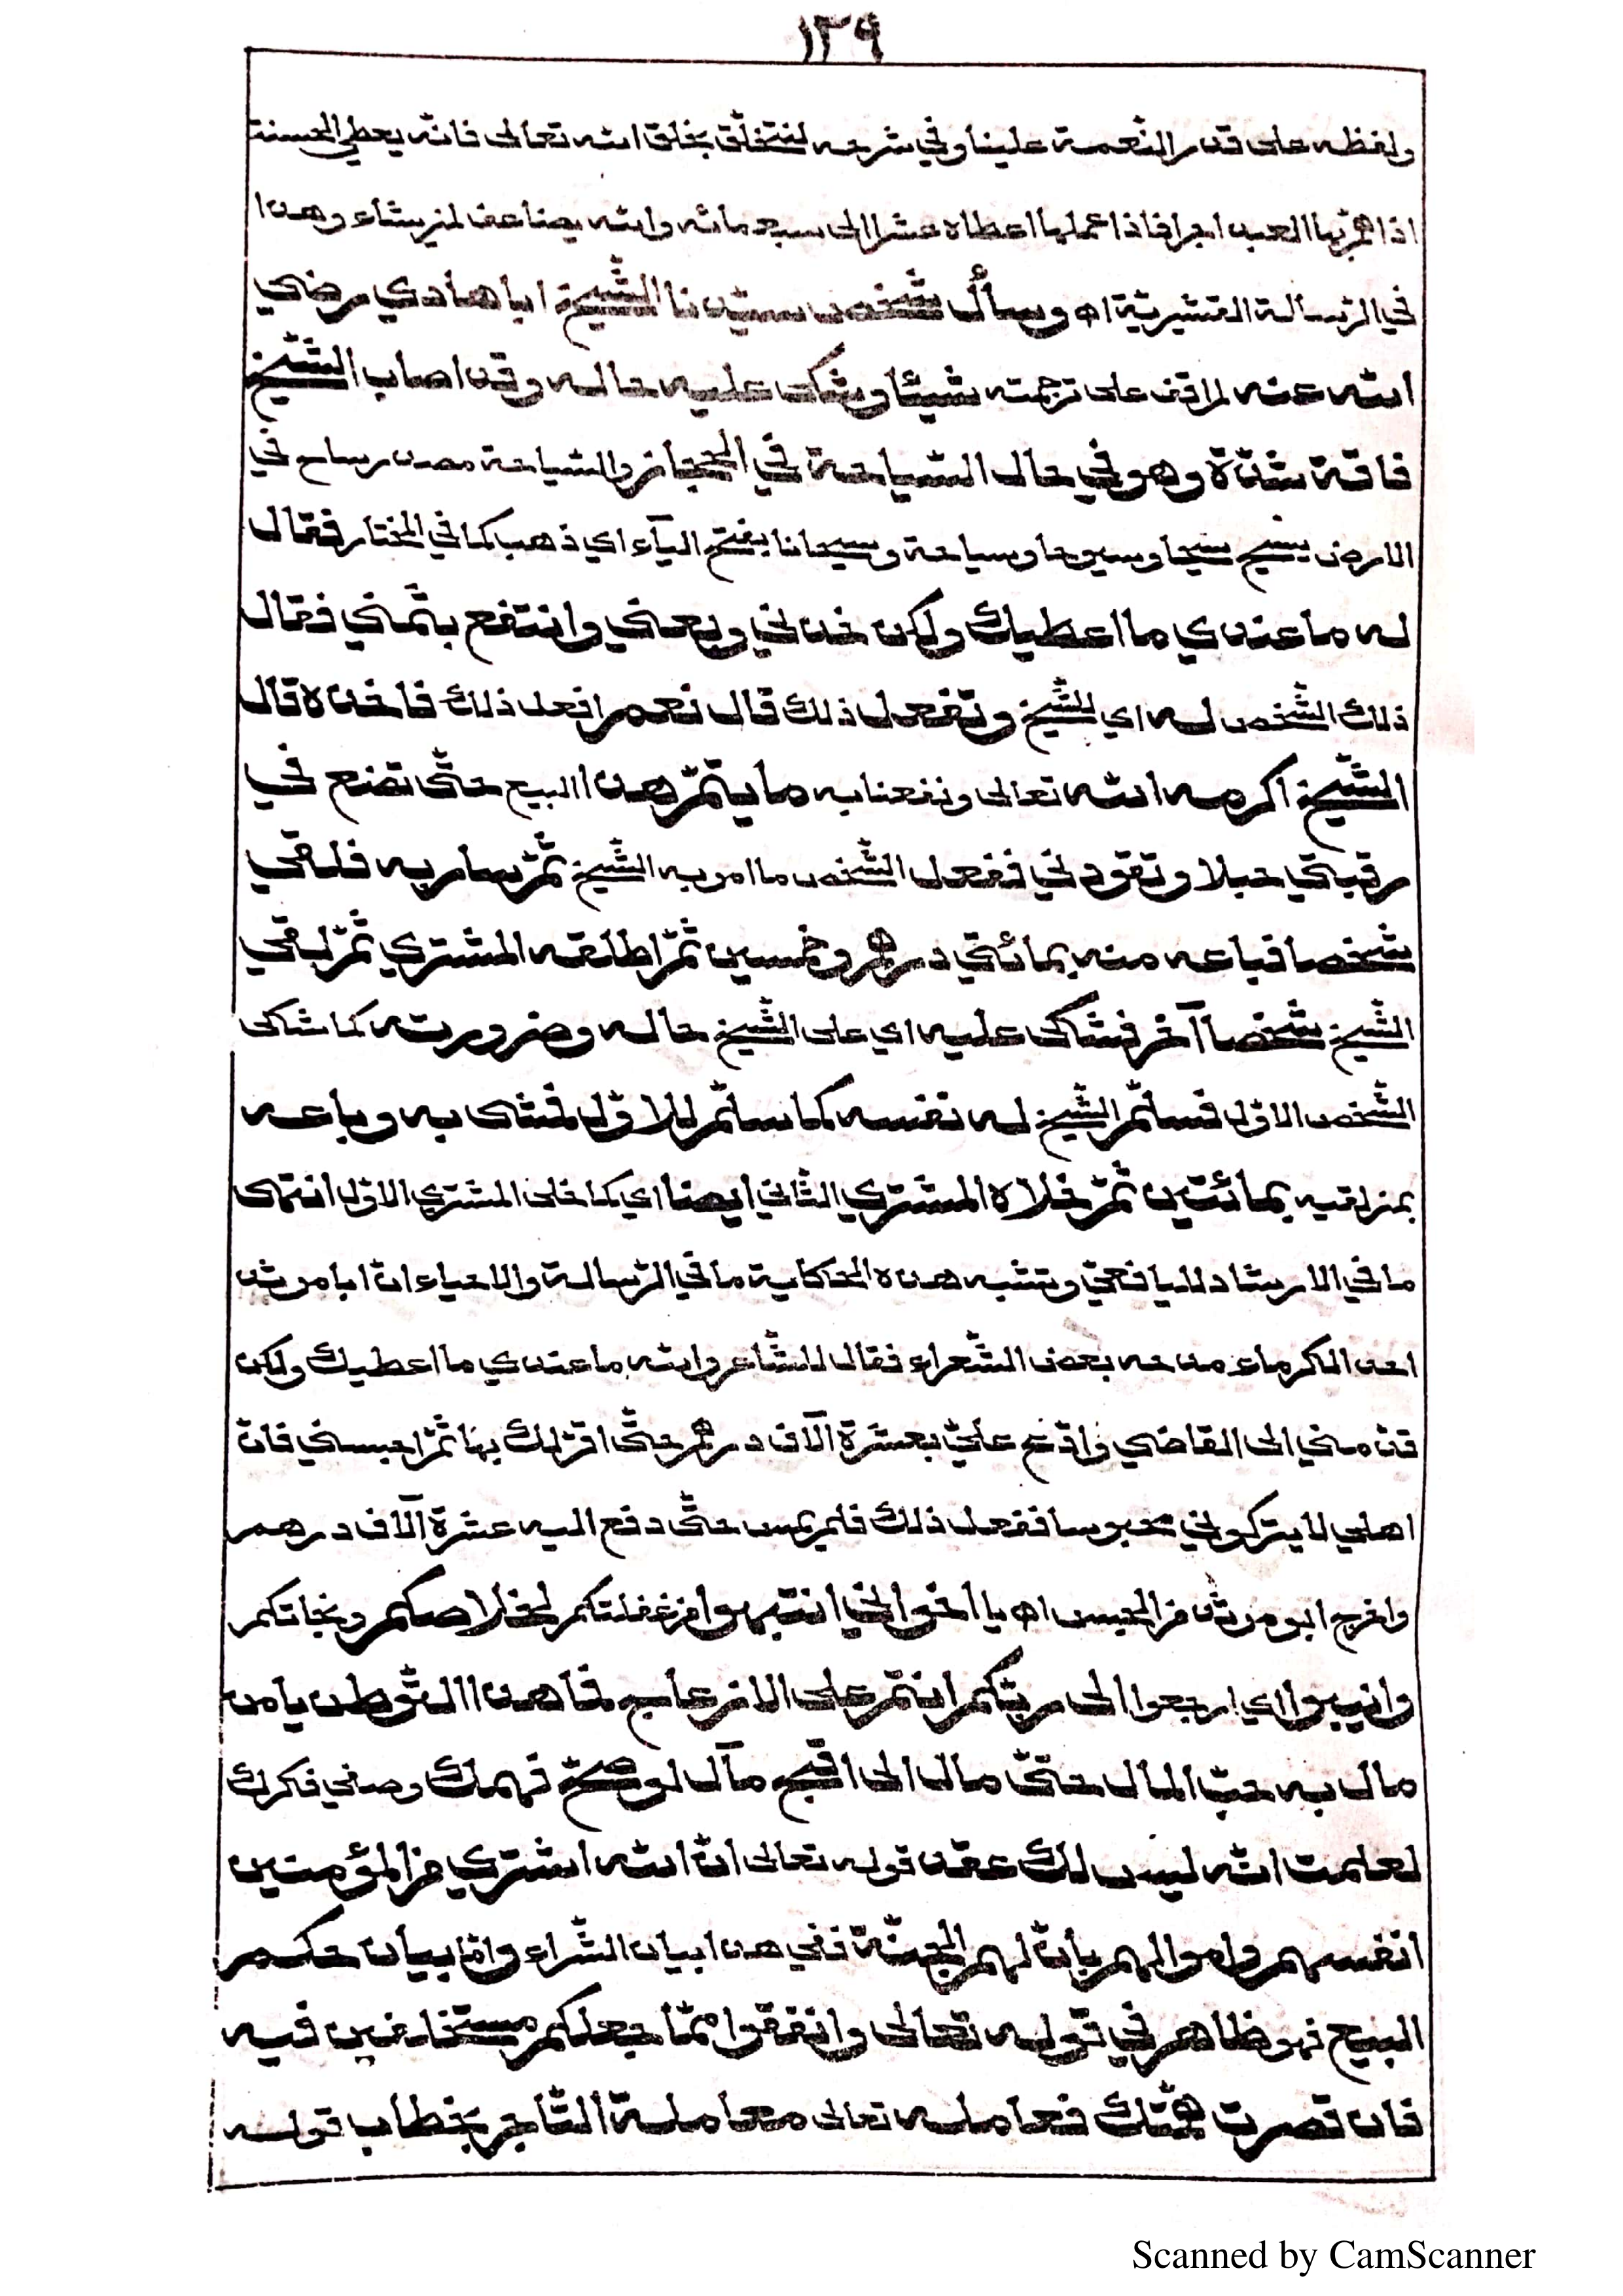 ١٣٩
ولفظه على قدر النّعمة علينا وفي شرحه لنتخلّق بخلق الله تعالى فانّه يعطي الحسنة
اذا همّ بها العبد اجرا فاذا عملها اعطاه عشرا الى سبعمائه والله يضاعف لمن يشاء وهذا
في الرّسالة القشيريّة اه وسأل شخص سيّدنا الشّيخ ابا هادي رضي
الله عنه لم اقف على ترجمته شيئا وشكى عليه حاله وقد اصاب الشّيخ
فاقة شدّة وهو في حال السّياحة في الحجاز والسّياحة مصدر ساح في
الارض يسيح سيحا وسيوحا وسياحة وسيحانا بفتح اليآء اي ذهب كما في المختار فقال
له ما عندي ما اعطيك ولكن خذني وبعني وانتفع بثمني فقال
ذلك الشّخص له اي للشّيخ وتفعل ذلك قال نعم افعل ذلك فاخذه قال
الشّيخ اكرمه الله تعالى ونفعنا به ما يتمّ هذا البيع حتّى تضع في
رقبتي حبلا وتقودني ففعل الشّخص ما امر به الشّيخ ثمّ سار به فلقي
شخصا فباعه منه بمائتي درهم وخمسين ثمّ اطلقه المشتري ثمّ لقي
الشّيخ شخصا آخر فشاكى عليه اي على الشّيخ حاله وضرورته كما شاكى
الشّخص الاوّل فسلّم الشّيخ له نفسه كما سلّم للاوّل فمشى به وباعه
بمنزلتيه بمائتين ثمّ خلاه المشتري الثّاني ايضا اي كما خلى المشتري الاوّل انتهى
ما في الارشاد لليافعيّ وتشبه هذه الحكاية ما في الرّسالة والاحياء انّ ابا مرثد
احد الكرماء مدحه بعض الشّعراء فقال للشّاعر والله ما عندي ما اعطيك ولكن
قدمني الى القاضي وادّع عليّ بعشرة آلاف درهم حتّى اقرّ لك بها ثمّ احبسني فانّ
اهلي لا يتركوني محبوسا ففعل ذلك فلم يمس حتّى دفع اليه عشرة آلاف درهم
واخرج ابو مرثد من الحبس اه يا اخواني انتبهوا من غفلتكم لخلاصكم ونجاتكم
وانيبوا اي ارجعوا الى ربّكم انتم على الازعاج فما هذا التّوطن يا من
مال به حبّ المال حتّى مال الى اقبح مآل لو صحّ فهمك وصفى فكرك
لعلمت انّه ليس لك عقد قوله تعالى انّ الله اشتري من المؤمنين
انفسهم واموالهم بانّ لهم الجنّة ففي هذا بيان الشّراء وامّا بيان حكم
البيع فهو ظاهر في قوله تعالى وانفقوا ممّا جعلكم مستخلفين فيه
فان قصرت همّتك فعامله تعالى معاملة التّاجر بخطاب قوله
Scanned by CamScanner